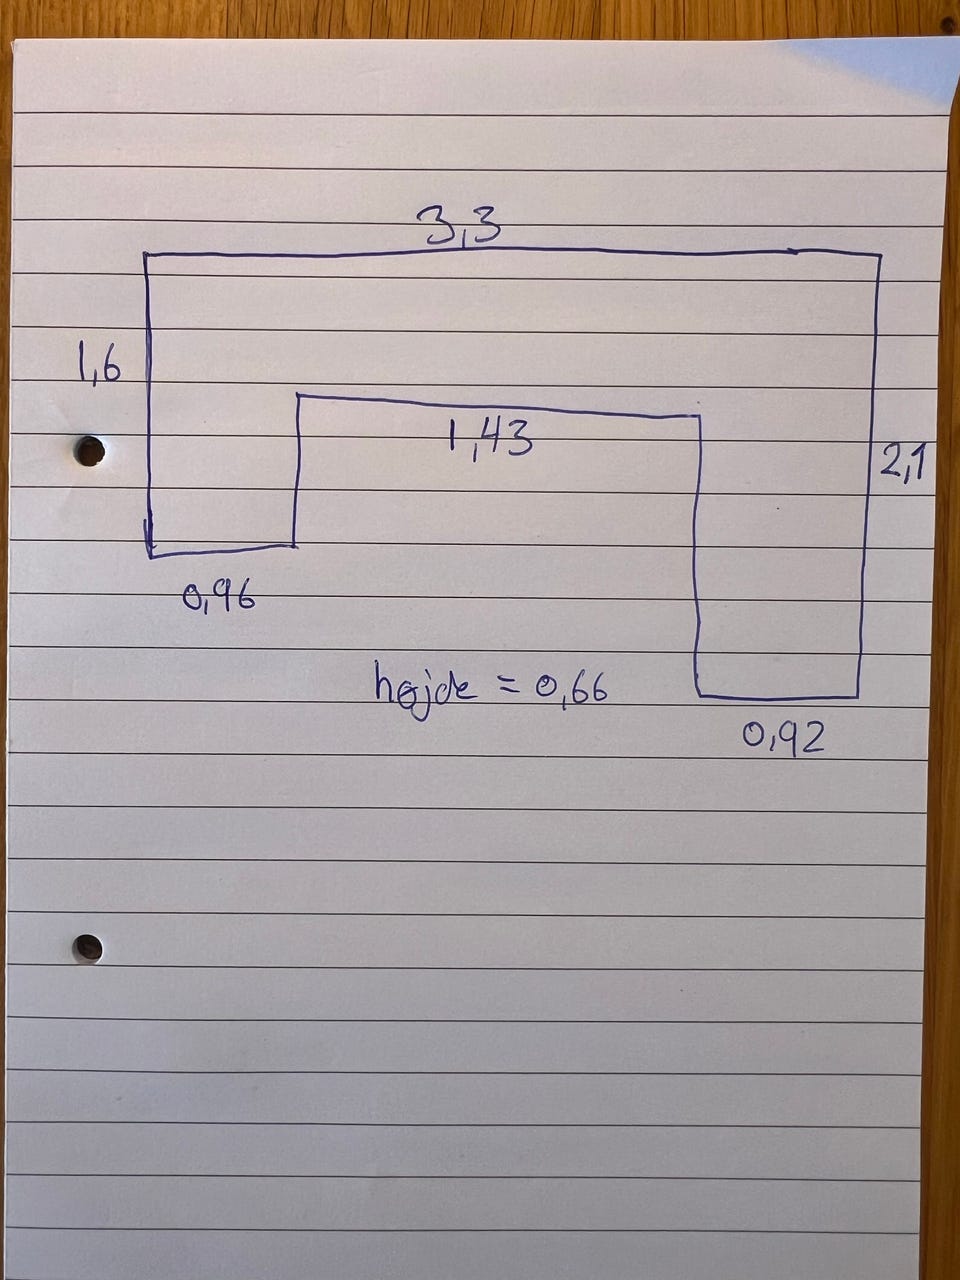 3,3
1,6
1,43
2,1
0,96
højde = 0,66
0,92